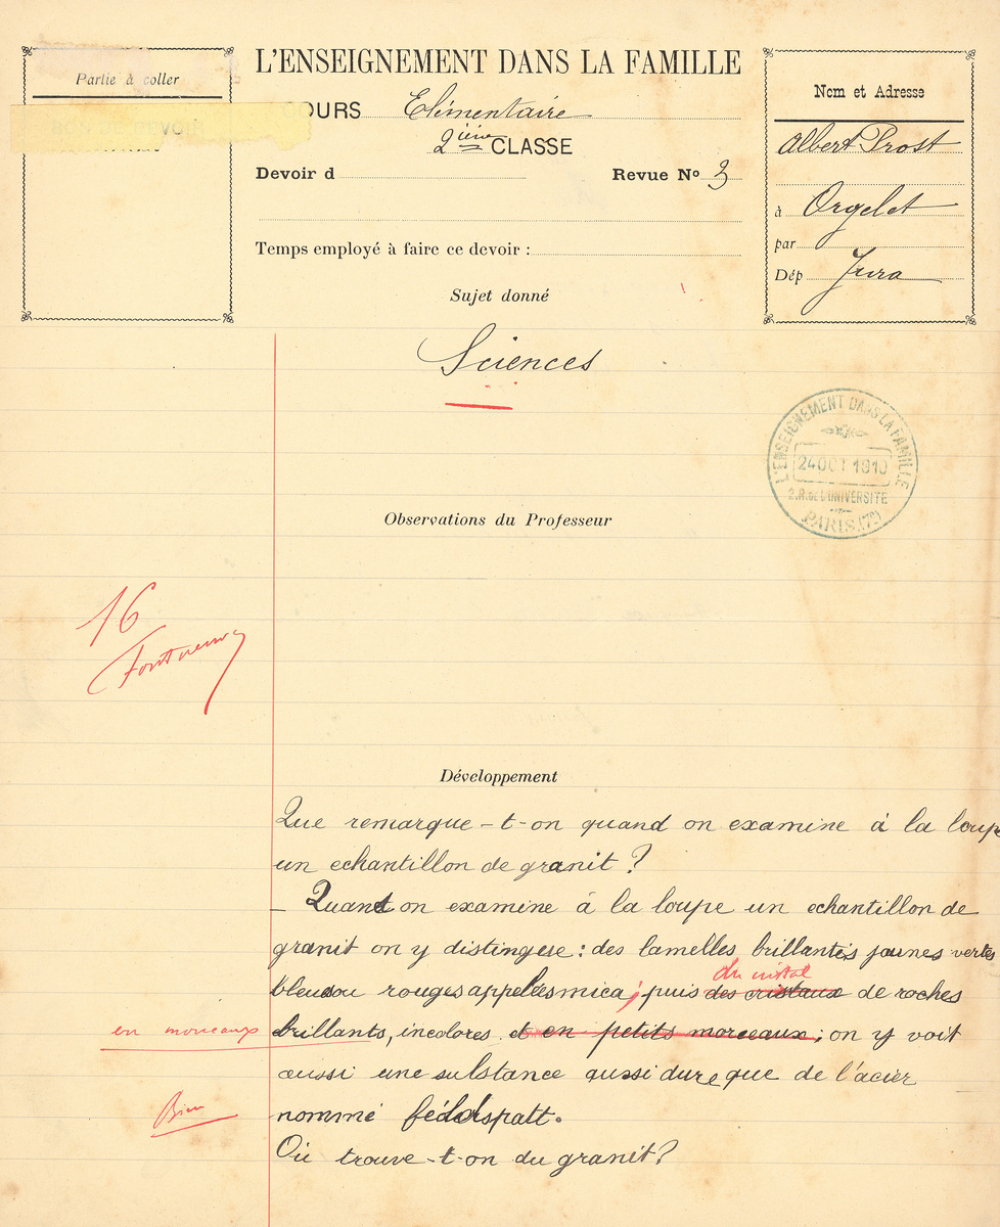 L'ENSEIGNEMENT DANS LA FAMILLE
Partie à coller
COURS Elémentaire
2ième CLASSE
Devoir d
Revue No 3
Temps employé à faire ce devoir :
Nom et Adresse
Albert Prost
à Orgelet
par
Dép Jura
Sujet donné
Sciences
L'ENSEIGNEMENT DANS LA FAMILLE
24 OCT 1919
2.R. DE L'UNIVERSITE
PARIS (7e)
Observations du Professeur
16
Développement
Que remarque-t-on quand on examine à la loupe
un echantillon de granit ?
- Quand on examine à la loupe un echantillon de
granit on y distingue : des lamelles brillantes jaunes vertes
du cristal
bleues ou rouges appelées mica ; puis des cristaux de roches
en morceaux brillants, incolores. et en petits morceaux ; on y voit
aussi une substance aussi dure que de l'acier
Bien nommé féldspatt.
Où trouve-t-on du granit ?